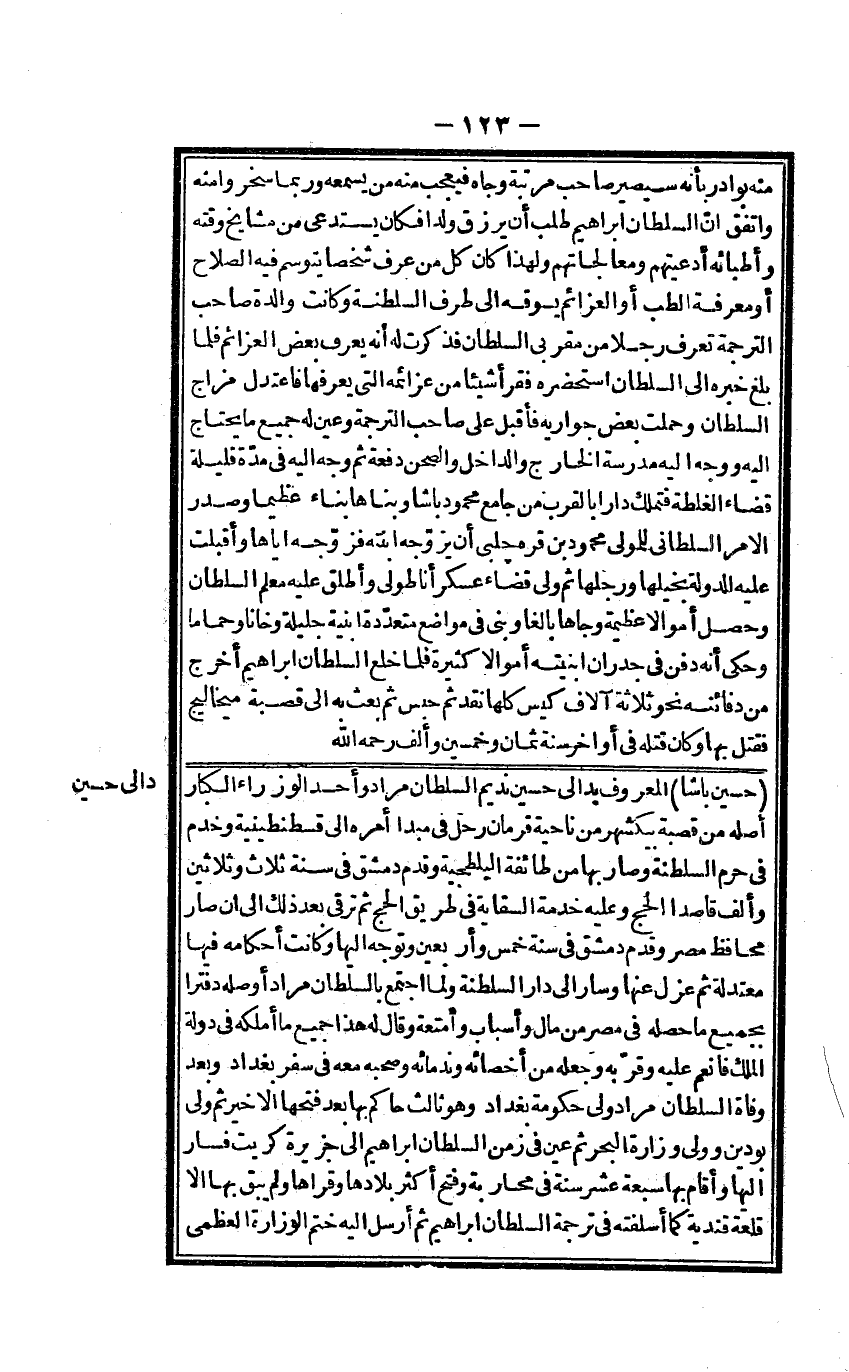 — ١٢٣ —
منه بوادر بأنه سيصير صاحب مرتبة وجاه فيعجب منه من يسمعه وربما سخروا منه
واتفق انّ السلطان ابراهيم طلب أن يرزق ولدا فكان يستدعى من مشايخ وقته
وأطبائه أدعيتهم ومعالجاتهم ولهذا كان كل من عرف شخصا يتوسم فيه الصلاح
أو معرفة الطب أو العزائم يسوقه الى طرف السلطنة وكانت والدة صاحب
الترجمة تعرف رجلا من مقربى السلطان فذكرت له أنه يعرف بعض العزائم فلما
بلغ خبره الى السلطان استحضره فقرأ شيئا من عزائمه التى يعرفها فاعتدل مزاج
السلطان وحملت بعض جواريه فأقبل على صاحب الترجمة وعين له جميع ما يحتاج
اليه ووجه اليه مدرسة الخارج والداخل والصحن دفعة ثم وجه اليه فى مدّة قليلة
قضاء الغلطة فتملك دارا بالقرب من جامع محمود باشا وبناها بناء عظيما وصدر
الامر السلطانى للمولى محمود بن قره چلبى أن يزوّجه ابنته فزوّجه اياها وأقبلت
عليه الدولة بخيلها ورجلها ثم ولى قضاء عسكر أناطولى وأطلق عليه معلم السلطان
وحصل أموالا عظيمة وجاها بالغا وبنى فى مواضع متعدّدة ابنية جليلة وخانا وحماما
وحكى أنه دفن فى جدران ابنيته أموالا كثيرة فلما خلع السلطان ابراهيم أخرج
من دفائنه نحو ثلاثة آلاف كيس كلها نقد ثم حبس ثم بعث به الى قصبة ميخاليج
فقتل بها وكان قتله فى أواخر سنة ثمان وخمسين وألف رحمه الله
دالى حسين
(حسين باشا) المعروف بدالى حسين نديم السلطان مراد وأحد الوزراء الكبار
أصله من قصبة يكشهر من ناحية قرمان رحل فى مبدا أمره الى قسطنطينية وخدم
فى حرم السلطنة وصار بها من طائفة البلطجية وقدم دمشق فى سنة ثلاث وثلاثين
وألف قاصدا الحج وعليه خدمة السقاية فى طريق الحج ثم ترقى بعد ذلك الى ان صار
محافظ مصر وقدم دمشق فى سنة خمس وأربعين وتوجه اليها وكانت أحكامه فيها
معتدلة ثم عزل عنها وسار الى دار السلطنة ولما اجتمع بالسلطان مراد أوصله دفترا
بجميع ما حصله فى مصر من مال وأسباب وأمتعة وقال له هذا جميع ما أملكه فى دولة
الملك فانعم عليه وقرّبه وجعله من أخصائه وندمائه وصحبه معه فى سفر بغداد وبعد
وفاة السلطان مراد ولى حكومة بغداد وهو ثالث حاكم بها بعد فتحها الاخير ثم ولى
بودين وولى وزارة البحر ثم عين فى زمن السلطان ابراهيم الى جزيرة كريت فسار
اليها وأقام بها سبعة عشر سنة فى محاربة وفتح أكثر بلادها وقراها ولم يبق بها الا
قلعة قندية كما أسلفته فى ترجمة السلطان ابراهيم ثم أرسل اليه ختم الوزارة العظمى